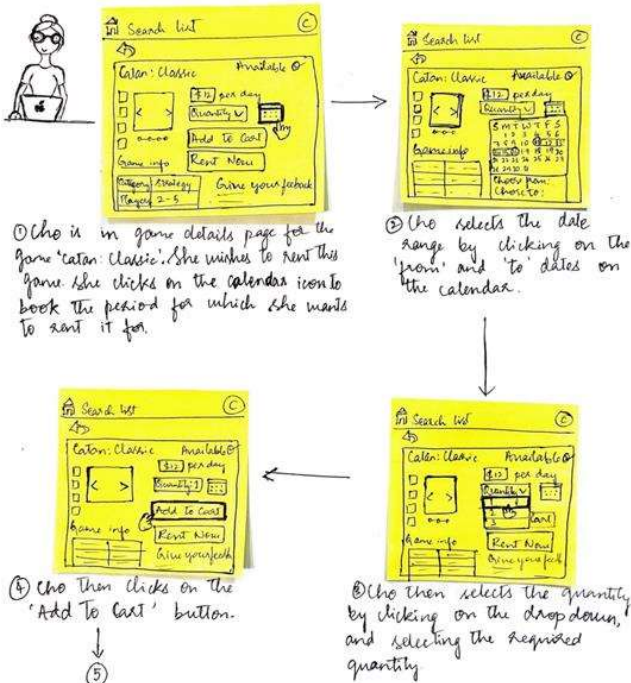 Search list C
Catan: Classic Available
$12 per day
Quantity
Add To Cart
Rent Now
Game info
Category Strategy
Players 2-5
Give your feedback
① Cho is in game details page for the
game 'Catan: Classic'. She wishes to rent this
game. She clicks on the calendar icon to
book the period for which she wants
to rent it for.
Search list C
Catan: Classic Available
$12 per day
Quantity
S M T W T F S
Game info
Choose from:
Chose to:
② Cho selects the date
range by clicking on the
'from' and 'to' dates on
the calendar.
Search list C
Catan: Classic Available
$12 per day
Quantity
2
3
Cart
Rent Now
Game info
Give your feedb
③ Cho then selects the quantity
by clicking on the drop down,
and selecting the required
quantity
Search list C
Catan: Classic Available
$12 per day
Quantity: 1
Add To Cart
Rent Now
Game info
Give your feedb
④ Cho then clicks on the
'Add To Cart' button.
⑤